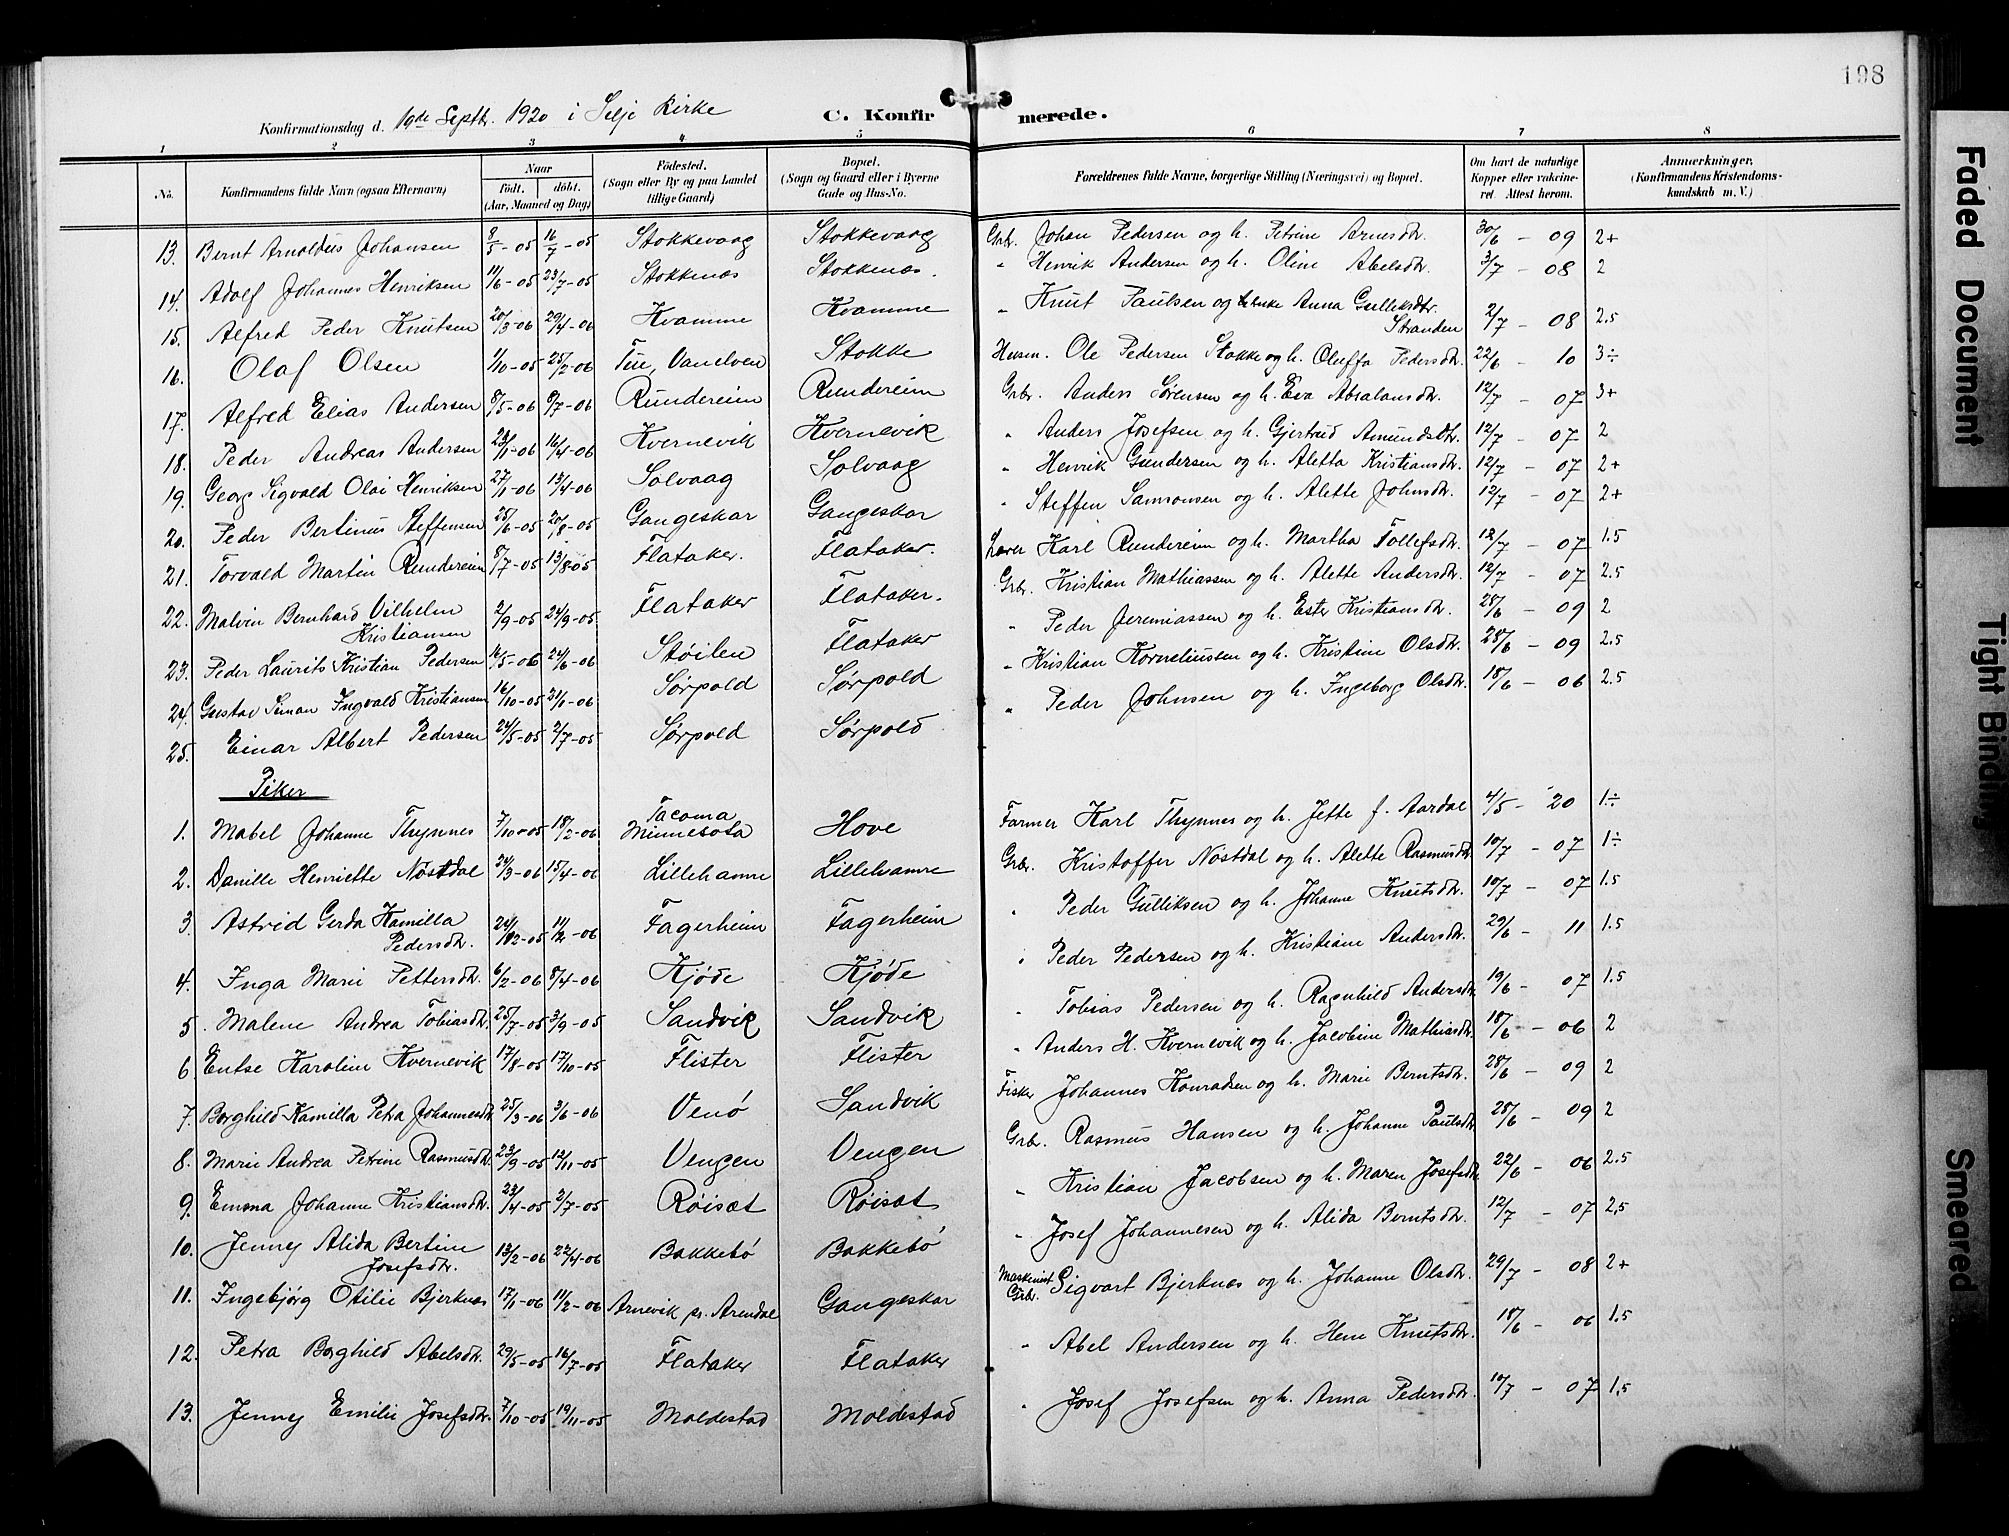 198
Konfirmationsdag d. 19de Septbr. 1920 i Selje Kirke
C. Konfirmerede.
1 2 3 4 5 6 7 8
No. Konfirmandens fulde Navn (ogsaa Efternavn) Naar født. døbt. (Aar, Maaned og Dag) Fødested. (Sogn eller By og paa Landet tillige Gaard) Bopæl. (Sogn og Gaard eller i Byerne Gade og Hus-No. Forældrenes fulde Navne, borgerlige Stilling (Næringsvei) og Bopæl. Om havt de naturlige Kopper eller vakcineret. Attest herom. Anmærkninger. (Konfirmandens Kristendomskundskab m. V.)
13. Bernt Arnoldus Johansen 8/5-05 16/7-05 Stokkevaag Stokkevaag Grbr. Johan Pedersen og h. Petrine Arnesdtr. 30/6 - 09 2+
14. Adolf Johannes Henriksen 11/6-05 23/7-05 Stokkenæs Stokkenæs. " Henrik Andersen og h. Oline Abelsdtr. 3/7 - 08 2
15. Alfred Peder Knutsen 20/3-06 29/4-06 Hvamme Hvamme " Knut Paulsen og Enke Anna Gulleiksdtr. Stranden 2/7 - 08 2.5
16. Olaf Olsen 1/10-05 25/2-06 Tue, Vanelven Stokke Husm. Ole Pedersen Stokke og h. Oluffa Pedersdtr. 22/6 - 10 3÷
17. Alfred Elias Andersen 8/5-06 8/7-06 Rundereim Rundereim Grbr. Anders Sørensen og h. Eva Absalonsdtr. 12/7 - 07 3+
18. Peder Andreas Andersen 23/1-06 16/4-06 Kvernevik Kvernevik " Anders Josefsen og h. Gjertrud Amundsdtr. 12/7 - 07 2
19. Georg Sigvald Olai Henriksen 27/1-06 13/4-06 Solvaag Solvaag " Henrik Gundersen og h. Aletta Kristiansdtr. 12/7 - 07 2+
20. Peder Bertinus Steffensen 25/6-05 20/8-05 Gangeskar Gangeskar " Steffen Samsonsen og h. Alette Johnsdtr. 12/7 - 07 2+
21. Torvald Martin Rundereim 8/7-05 13/8-05 Flataker. Flataker. Lærer Karl Rundereim og h. Martha Tollefsdtr. 12/7 - 07 1.5
22. Malvin Bernhard Vilhelm Kristiansen 2/9-05 24/9-05 Flataker Flataker. Grbr. Kristian Mathiassen og h. Alette Andersdtr. 12/7 - 07 2.5
23. Peder Laurits Kristian Pedersen 16/5-06 24/6-06 Støilen Flataker " Peder Jeremiassen og h. Ester Kristiansdtr. 28/6 - 09 2
24. Gustav Simon Ingvald Kristiansen 16/10-05 21/1-06 Sørpold Sørpold " Kristian Korneliussen og h. Kristine Olsdtr. 28/6 - 09 2.5
25. Einar Albert Pedersen 24/5-05 2/7-05 Sørpold Sørpold " Peder Johnsen og h. Ingeborg Olsdtr. 18/6 - 06 2.5
Piker
1. Mabel Johanne Thynnes 7/10-05 18/2-06 Tacoma Minnesota Hove Farmer Karl Thynnes og h. Jette f. Aardal 4/5 - 20 1÷
2. Danille Henriette Nøstdal 24/3-06 15/4-06 Lillehamre Lillehamre Grbr. Kristoffer Nøstdal og h. Alette Rasmusdtr. 10/7 - 07 1÷
3. Astrid Gerda Kamilla Pedersdtr. 24/12-05 11/2-06 Fagerheim Fagerheim " Peder Gulliksen og h. Johanne Knutsdtr. 10/7 - 07 1.5
4. Inga Marie Pettersdtr. 6/2-06 8/4-06 Kjøde Kjøde " Peder Pedersen og h. Kristiane Andersdtr. 29/6 - 11 1.5
5. Malene Andrea Tobiasdtr. 25/7-05 3/9-05 Sandvik Sandvik " Tobias Pedersen og h. Ragnhild Andersdtr. 19/6 - 07 1.5
6. Entse Karoline Kvernevik 17/8-05 17/10-05 Flister Flister " Anders H. Kvernevik og h. Jacobine Mathiasdtr. 18/6 - 06 2
7. Borghild Kamilla Petra Johannesdtr. 25/3-06 3/6-06 Venø Sandvik Fisker Johannes Konradsen og h. Marie Berntsdtr. 28/6 - 09 2
8. Marie Andrea Petrine Rasmusdtr. 23/9-05 12/11-05 Vengen Vengen Grbr. Rasmus Hansen og h. Johanne Paulsdtr. 28/6 - 09 2
9. Emma Johanne Kristiansdtr. 23/4-05 2/7-05 Røisæt Røisæt " Kristian Jacobsen og h. Maren Josefsdtr. 22/6 - 06 2.5
10. Jenny Alida Bertine Josefsdtr. 13/2-06 22/4-06 Bakkebø Bakkebø " Josef Johannesen og h. Alida Berntsdtr. 12/7 - 07 2.5
11. Ingebjørg Otilie Bjerknæs 17/1-06 11/2-06 Arnevik pr. Arendal Gangeskar Maskinist Grbr. Sigvart Bjerknæs og h. Johanne Olsdtr. 29/7 - 08 2+
12. Petra Borghild Abelsdtr. 29/5-05 16/7-05 Flataker Flataker " Abel Andersen og h. Hene Knutsdtr. 18/6 - 06 1.5
13. Jenny Emilie Josefsdtr. 7/10-05 19/11-05 Moldestad Moldestad " Josef Josefsen og h. Anna Pedersdtr. 10/7 - 07 1.5
Faded Document
Tight Binding
Smeared